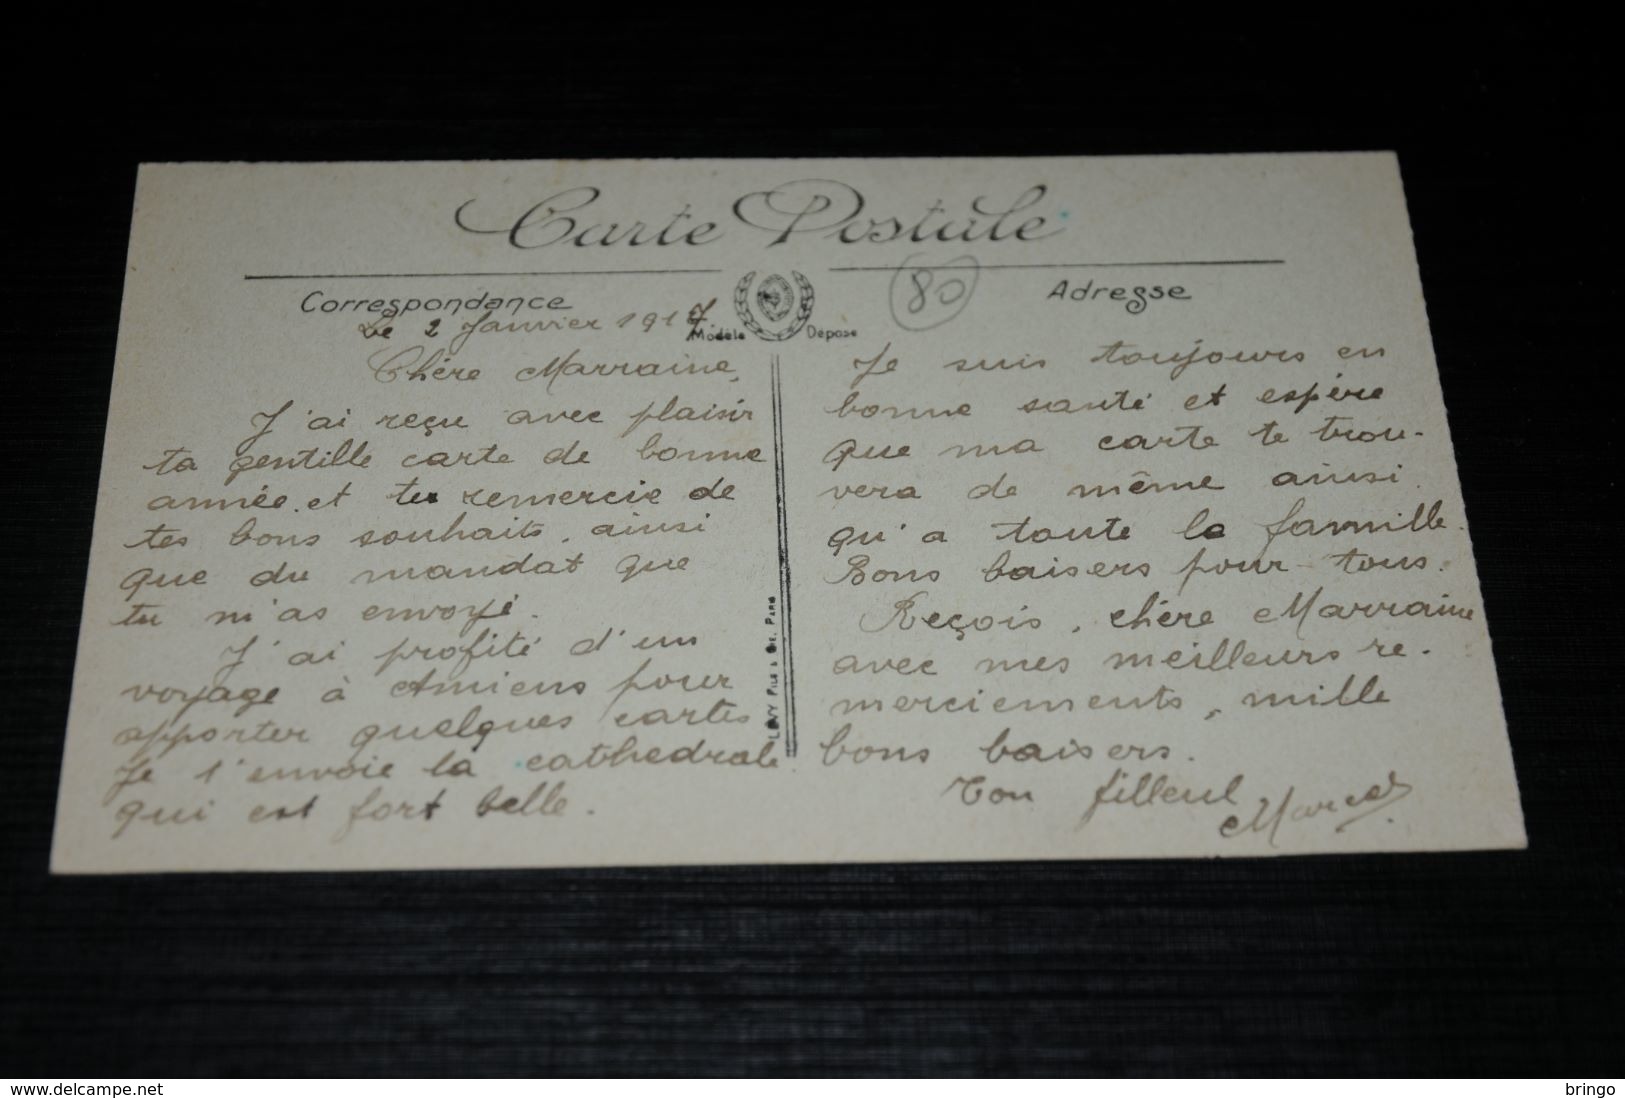 Carte Postale
Correspondance
Adresse
80
Modèle Déposé
Le 2 Janvier 1917.
Chère Marraine,
J'ai reçu avec plaisir
ta gentille carte de bonne
année. et te remercie de
tes bons souhaits, ainsi
que du mandat que
tu m'as envoyé.
J'ai profité d'un
voyage à Amiens pour
apporter quelques cartes
Je t'envoie la cathedrale.
qui est fort belle.
LEVY FILS & CIE. PARIS
Je suis toujours en
bonne santé et espère
que ma carte te trou-
vera de même ainsi
qu'a toute la famille.
Bons baisers pour tous.
Reçois, chère Marraine
avec mes meilleurs re-
merciements, mille
bons baisers.
Ton filleul
Marcel
delcampe.net
bringo